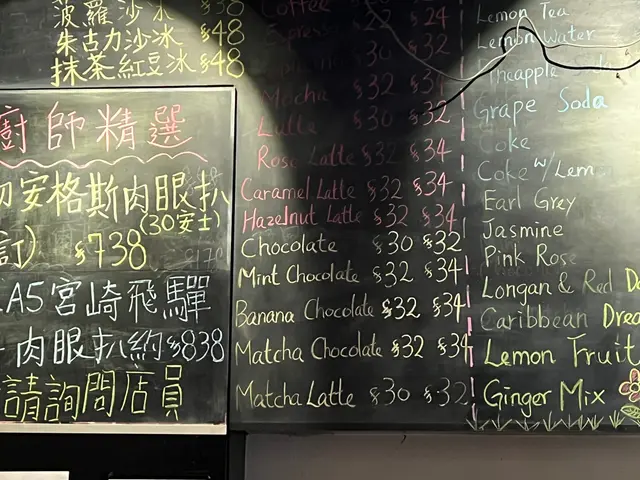 波蘿沙冰 $38
朱古力沙冰 $48
抹茶紅豆冰 $48
廚師精選
安格斯肉眼扒
(30安士)
訂) $738
A5宮崎飛驒
肉眼扒約$838
請詢問店員
Coffee $22 $24
$32
Mocha $32
Latte $30 $32
Rose Latte $32 $34
Caramel Latte $32 $34
Hazelnut Latte $32 $34
Chocolate $30 $32
Mint Chocolate $32 $34
Banana Chocolate $32 $34
Matcha Chocolate $32 $34
Matcha Latte $30 $32
Lemon Tea
Lemon Water
Grape Soda
Coke
Coke w/ Lem
Earl Grey
Jasmine
Pink Rose
Longan & Red Da
Caribbean Drea
Lemon Fruit
Ginger Mix